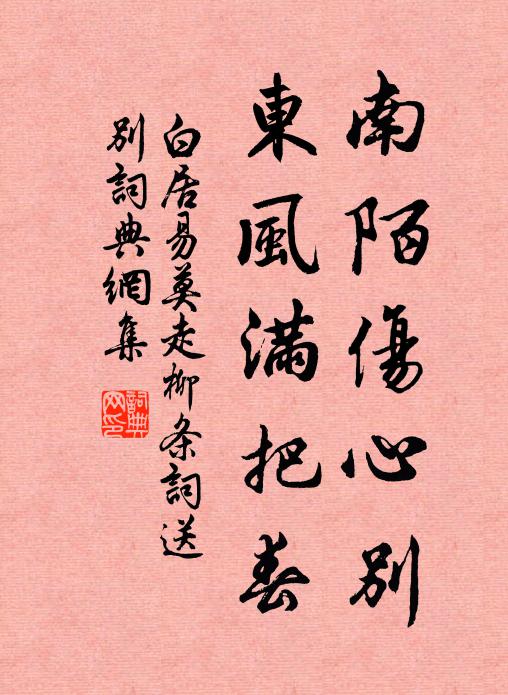 南陌傷心別
東風滿把春
白居易莫走柳条詞送
別詞典網集
詞典网印